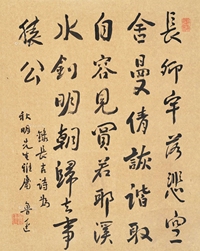 長卿牢落悲空
舍曼倩詼諧取
自容見買若耶溪
水劍明朝歸去事
猿公
錄長吉詩為
秋明先生雅屬 魯迅